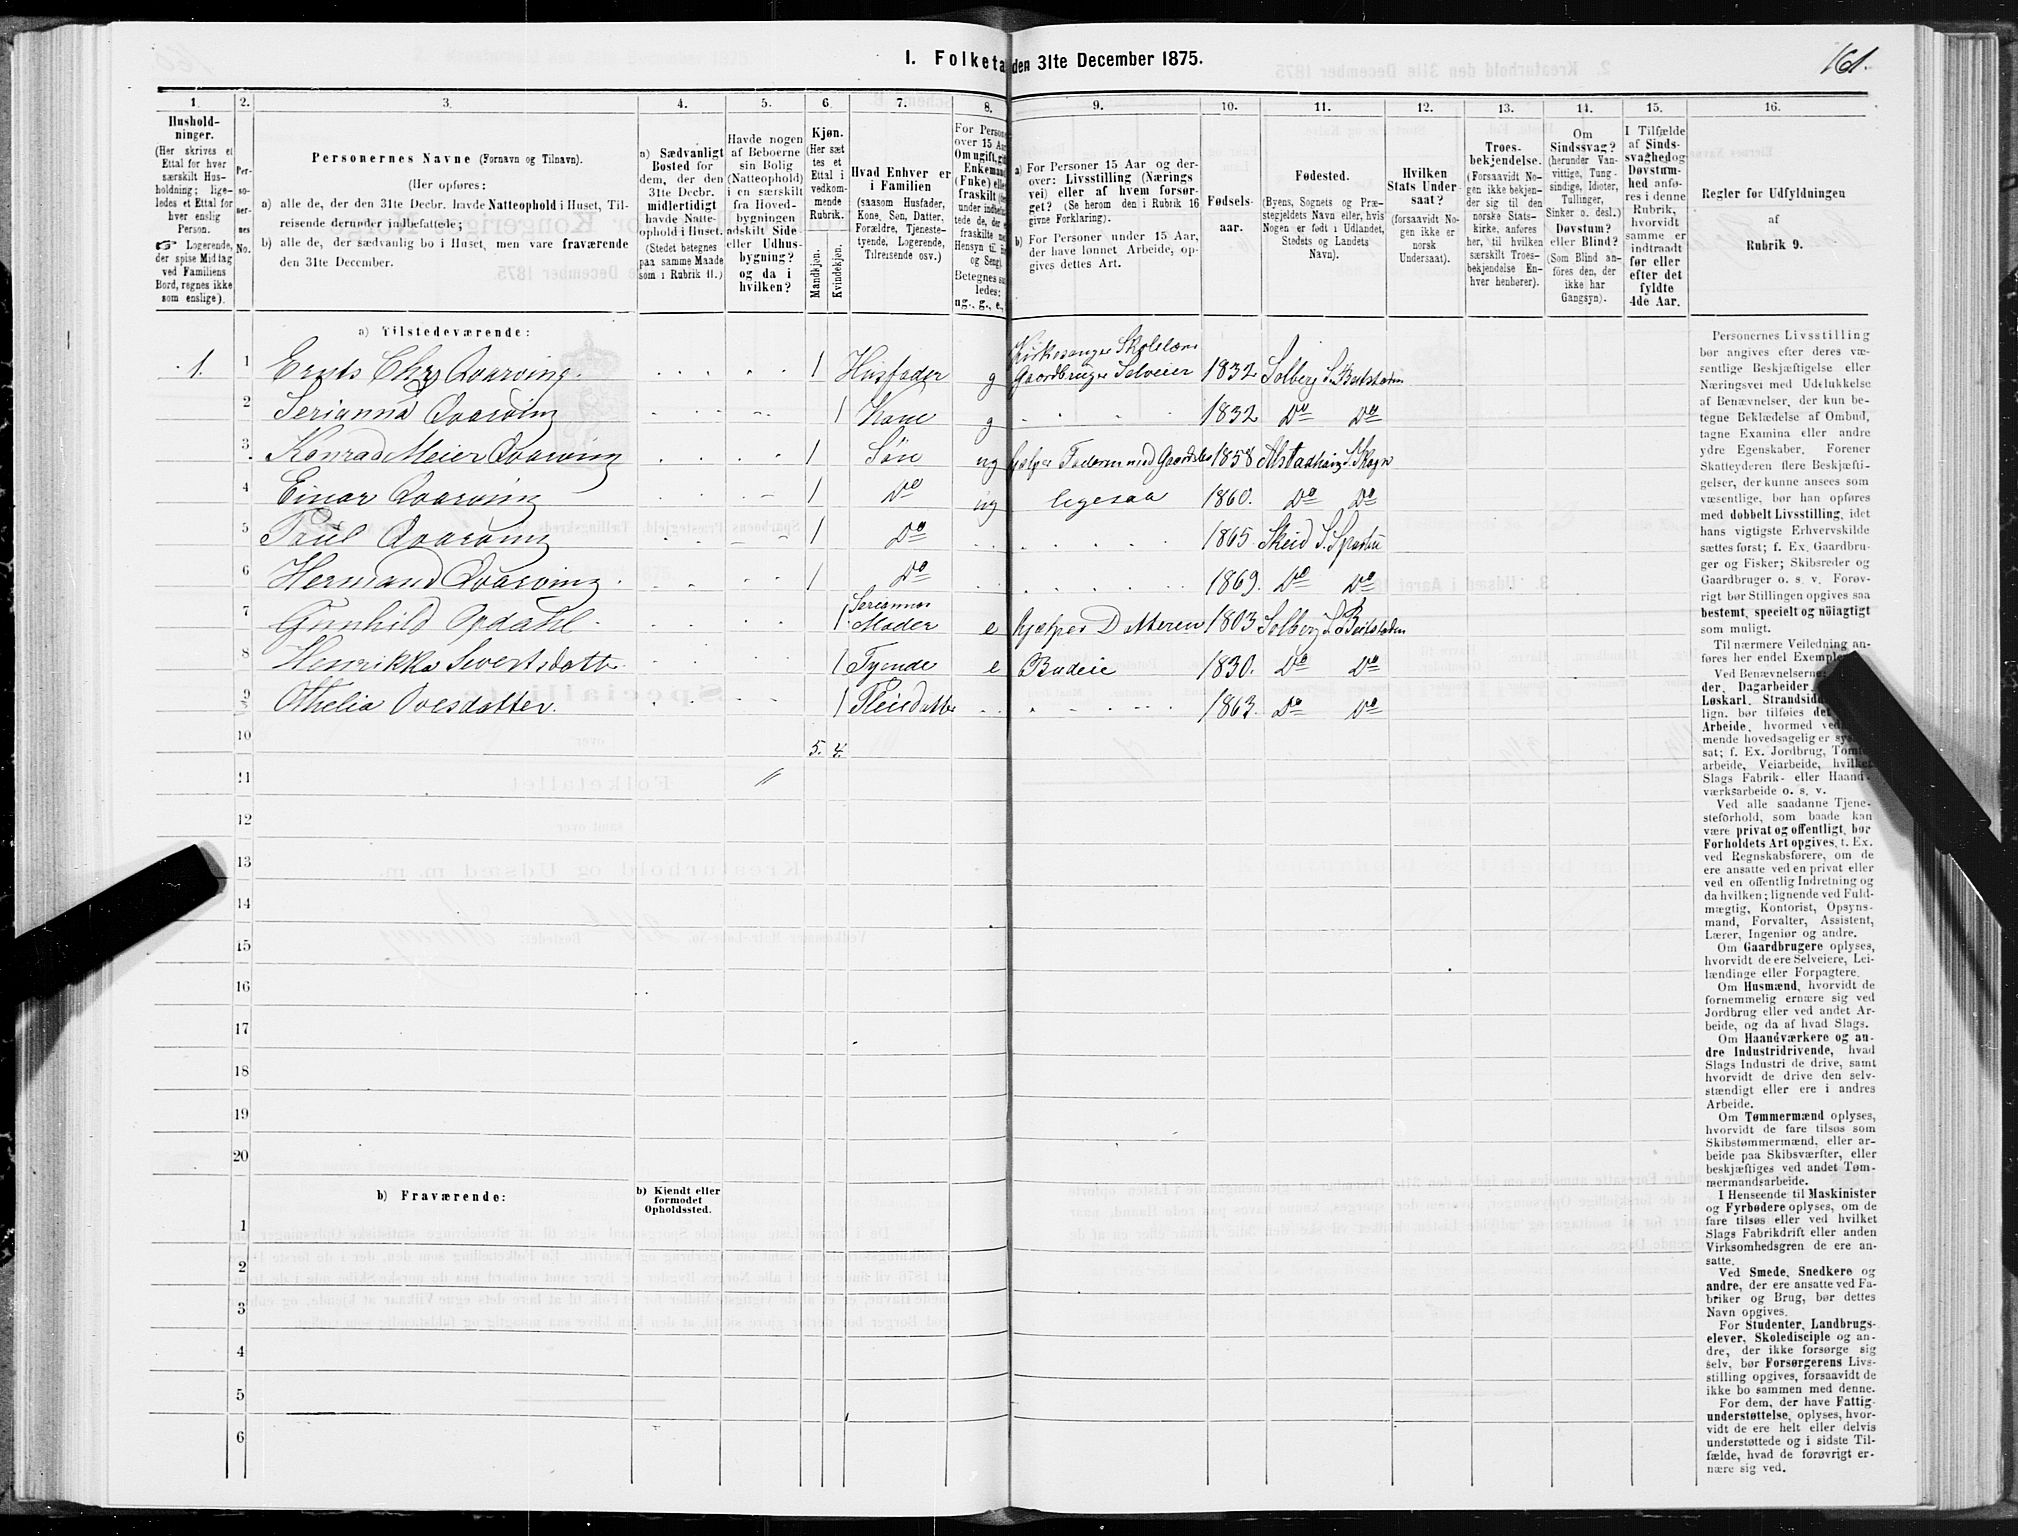 161.
I. Folketa den 31te December 1875.
1. 2. 3. 4. 5. 6. 7. 8. 9. 10. 11. 12. 13. 14. 15. 16.
Hushold-
ninger.
(Her skrives et
Ettal for hver
særskilt Hus-
holdning; lige-
ledes et Ettal for
hver enslig
Person.
☞ Logerende,
der spise Middag
ved Familiens
Bord, regnes ikke
som enslige).
Per-
so-
ner-
nes
No.
Personernes Navne (Fornavn og Tilnavn).
(Her opføres:
a) alle de, der den 31te Decbr. havde Natteophold i Huset, Til-
reisende derunder indbefattede;
b) alle de, der sædvanlig bo i Huset, men vare fraværende
den 31te December.
a) Sædvanligt
Bosted for
dem, der den
31te Decbr.
midlertidigt
havde Natte-
ophold i Huset.
(Stedet betegnes
paa samme Maade
som i Rubrik 11.)
Havde nogen
af Beboerne
sin Bolig
(Natteophold)
i en særskilt
fra Hoved-
bygningen
adskilt Side-
eller Udhus-
bygning?
og da i
hvilken?
Kjøn.
(Her sæt-
tes et
Ettal i
vedkom-
mende
Rubrik.
Mandkjøn.
Kvindekjøn.
Hvad Enhver er
i Familien
(saasom Husfader,
Kone, Søn, Datter,
Forældre, Tjeneste-
tyende, Logerende,
Tilreisende osv.)
For Persone
over 15 Aar
Om ugift, gift
Enkemand
(Enke) elle
fraskilt
under indbefat
tede de, der e
fraskilte me
Hensyn til
og Seng).
Betegnes saa
ledes:
ug., g., e.,
a) For Personer 15 Aar og der-
over: Livsstilling (Nærings
vei) eller af hvem forsør-
get? (Se herom den i Rubrik 16
givne Forklaring).
b) For Personer under 15 Aar,
der have lønnet Arbeide, op-
gives dettes Art.
Fødsels-
aar.
Fødested.
(Byens, Sognets og Præ-
stegjeldets Navn eller, hvis
Nogen er født i Udlandet,
Stedets og Landets
Navn).
Hvilken
Stats Under-
saat?
(forsaavidt No-
gen ikke er
norsk
Undersaat).
Troes-
bekjendelse.
(Forsaavidt No-
gen ikke bekjen-
der sig til den
norske Stats-
kirke, anføres
her, til hvilken
særskilt Troes-
bekjendelse En-
hver henhører).
Om
Sindssvag?
(herunder Van-
vittige, Tung-
sindige, Idioter,
Tullinger,
Sinker o. desl.)
Døvstum?
eller Blind?
(Som Blind an-
føres den, der
ikke har
Gangsyn).
I Tilfælde
af Sinds-
svaghed og
Døvstum-
hed anfø-
res i denne
Rubrik,
hvorvidt
samme er
indtraadt
før eller
efter det
fyldte
4de Aar.
Regler for Udfyldningen
af
Rubrik 9.
a) Tilstedeværende:
1. 1 Ernts Chr Qvarving. 1 Husfader g Kirkesanger Skolelærer Gaardbruger Selveier 1832 Solberg S. Beitstaden
2 Serianna Qvarving 1 Kone g 1832 Do Do
3 Konrad Meier Qvarving 1 Søn ug hjelper Faderen med Gaardsbr 1858 Alstadhaug S. Skogn
4 Einar Qvarving 1 Do ug ligesaa 1860. Do Do
5 Paul Qvarving 1 Do 1865 Skeid S. Sparbu
6 Hermand Qvarving 1 Do 1869. Do Do
7 Gunhild Opdahl 1 Seriannas Moder e hjelper Datteren 1803 Solberg S. Beitstaden
8 Henrikka Sivertsdatter 1 Tyende e Budeie 1830. Do Do
9 Othelia Ovesdatter 1 Pleiedatter 1863. Do Do
10 5. 4.
11
12
13
14
15
16
17
18
19
20
b) Fraværende:
b) Kjendt eller
formodet
Opholdssted.
1
2
3
4
5
6
Personernes Livsstilling
bør angives efter deres væ-
sentlige Beskjæftigelse eller
Næringsvei med Udelukkelse
af Benævnelser, der kun be-
tegne Beklædelse af Ombud,
tagne Examina eller andre
ydre Egenskaber. Forener
Skatteyderen flere Beskjæfti-
gelser, der kunne ansees som
væsentlige, bør han opføres
med dobbelt Livsstilling, idet
hans vigtigste Erhvervskilde
sættes først; f. Ex. Gaardbru-
ger og Fisker; Skibsreder og
Gaardbruger o. s. v. Forøv-
rigt bør Stillingen opgives saa
bestemt, specielt og nöiagtigt
som muligt.
Til nærmere Veiledning an-
føres her endel Exempler
Ved Benævnelserne
der, Dagarbeider,
Løskarl, Strandsid
lign. bør tilføies det
Arbeide, hvormed ved
mende hovedsagelig er sys
sat; f. Ex. Jordbrug, Tømm
arbeide, Veiarbeide, hvilket
Slags Fabrik- eller Haand-
værksarbeide o. s. v.
Ved alle saadanne Tjene-
steforhold, som baade kan
være privat og offentligt, bør
Forholdets Art opgives, t. Ex.
ved Regnskabsførere, om de
ere ansatte ved en privat eller
ved en offentlig Indretning og
da hvilken; lignende ved Fuld-
mægtig, Kontorist, Opsyns-
mand, Forvalter, Assistent,
Lærer, Ingeniør og andre.
Om Gaardbrugere oplyses,
hvorvidt de ere Selveiere, Lei-
lændinge eller Forpagtere.
Om Husmænd, hvorvidt de
fornemmelig ernære sig ved
Jordbrug eller ved andet Ar-
beide, og da af hvad Slags.
Om Haandværkere og an-
dre Industridrivende, hvad
Slags Industri de drive, samt
hvorvidt de drive den selv-
stændigt eller ere i andres
Arbeide.
Om Tømmermænd oplyses,
hvorvidt de fare tilsøs som
Skibstømmermænd, eller ar-
beide paa Skibsværfter, eller
beskjæftiges ved andet Tøm-
mermandsarbeide.
I Henseende til Maskinister
og Fyrbødere oplyses, om de
fare tilsøs eller ved hvilket
Slags Fabrikdrift eller anden
Virksomhedsgren de ere an-
satte.
Ved Smede, Snedkere og
andre, der ere ansatte ved Fa-
briker og Brug, bør dettes
Navn opgives.
For Studenter, Landbrugs-
elever, Skoledisciple og an-
dre, der ikke forsørge sig
selv, bør Forsørgerens Livs-
stilling opgives, forsaavidt de
ikke bo sammen med denne.
For dem, der have Fattig-
understøttelse, oplyses, hvor-
vidt de ere helt eller delvis
understøttede og i sidste Til-
fælde, hvad de forøvrigt er-
nære sig ved.